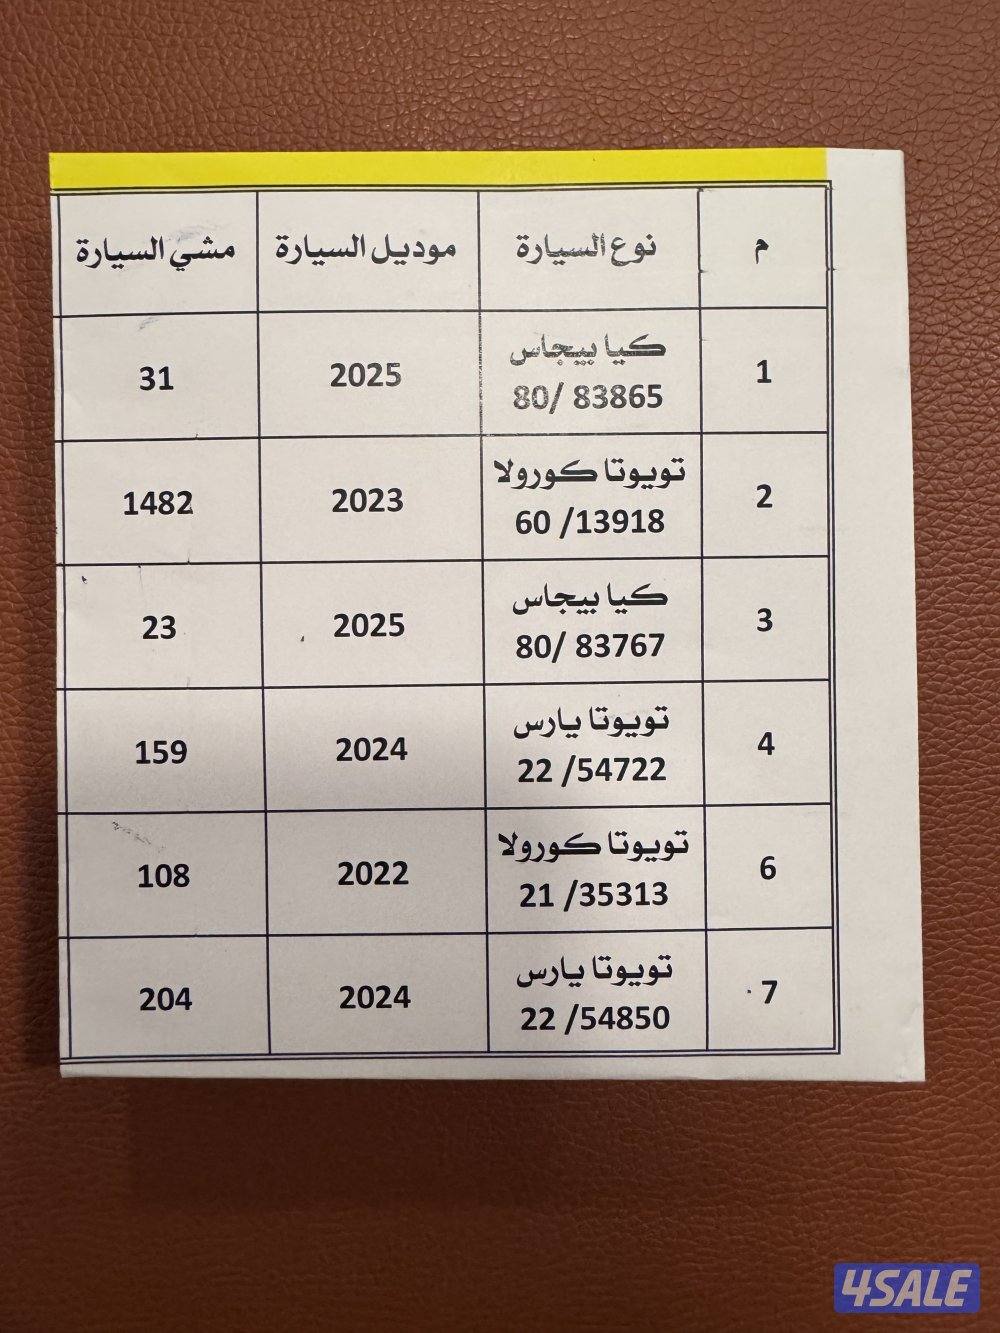 م نوع السيارة موديل السيارة مشي السيارة
1 كيا بيجاس 2025 31
80/ 83865
2 تويوتا كورولا 2023 1482
60 /13918
3 كيا بيجاس 2025 23
80/ 83767
4 تويوتا يارس 2024 159
22 /54722
6 تويوتا كورولا 2022 108
21 /35313
7 تويوتا يارس 2024 204
22 /54850
4SALE